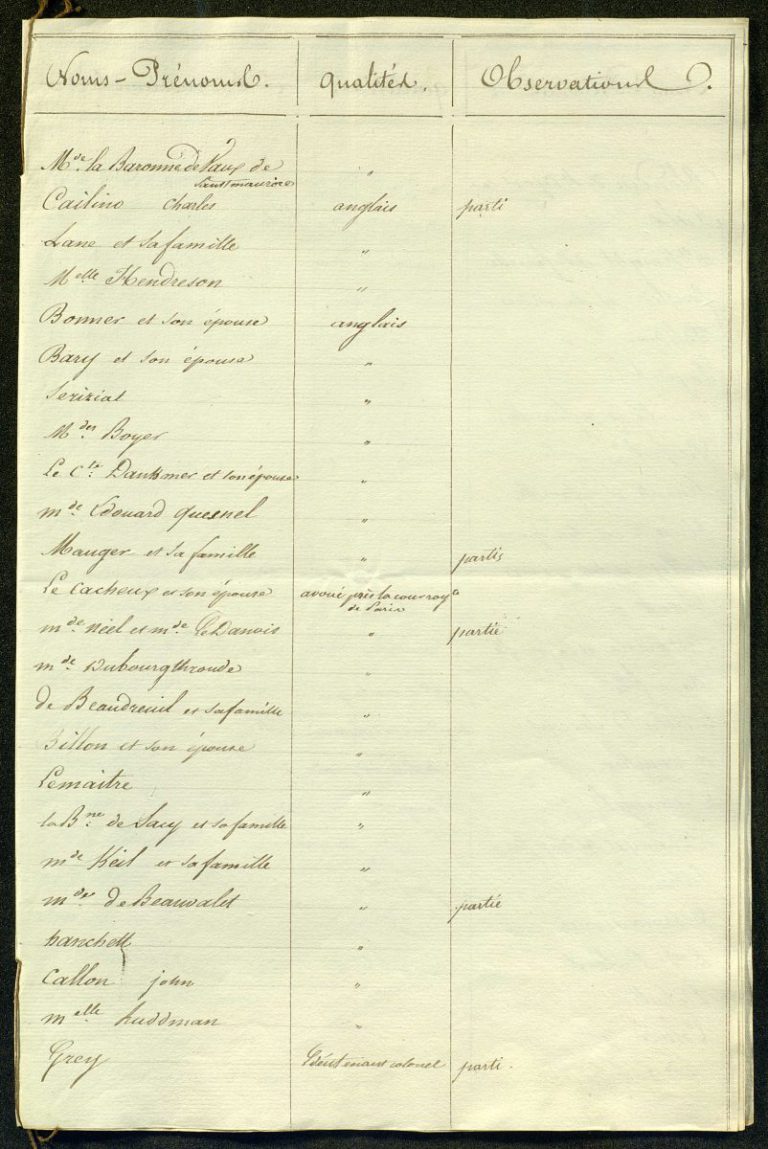 Noms - Prénoms. qualités. Observations.
Mde. la Baronne de Vaux de "
Saintmaurice
Cailino Charles anglais parti
Lane et sa famille "
Melle Hendreson "
Bonner et son épouse anglais
Bary et son épouse "
Seriziat "
Mdes Boyer "
Le Cte. et son épouse "
mde. Edouard Quesnel "
Mauger et sa famille " partis
Le Cacheux et son épouse avoué près la cour roya
de Paris
mde. Néel et mde. Le Danois " partie
mde. Dubourgthroude "
de Beaudreuil et sa famille "
Billon et son épouse "
Lemaitre "
la Bne. de Sacy et sa famille "
mde Keil et sa famille "
mde de Beauvalet " partie
hanchett "
Callon john "
melle huddman "
Grey Lieutenant colonel parti.